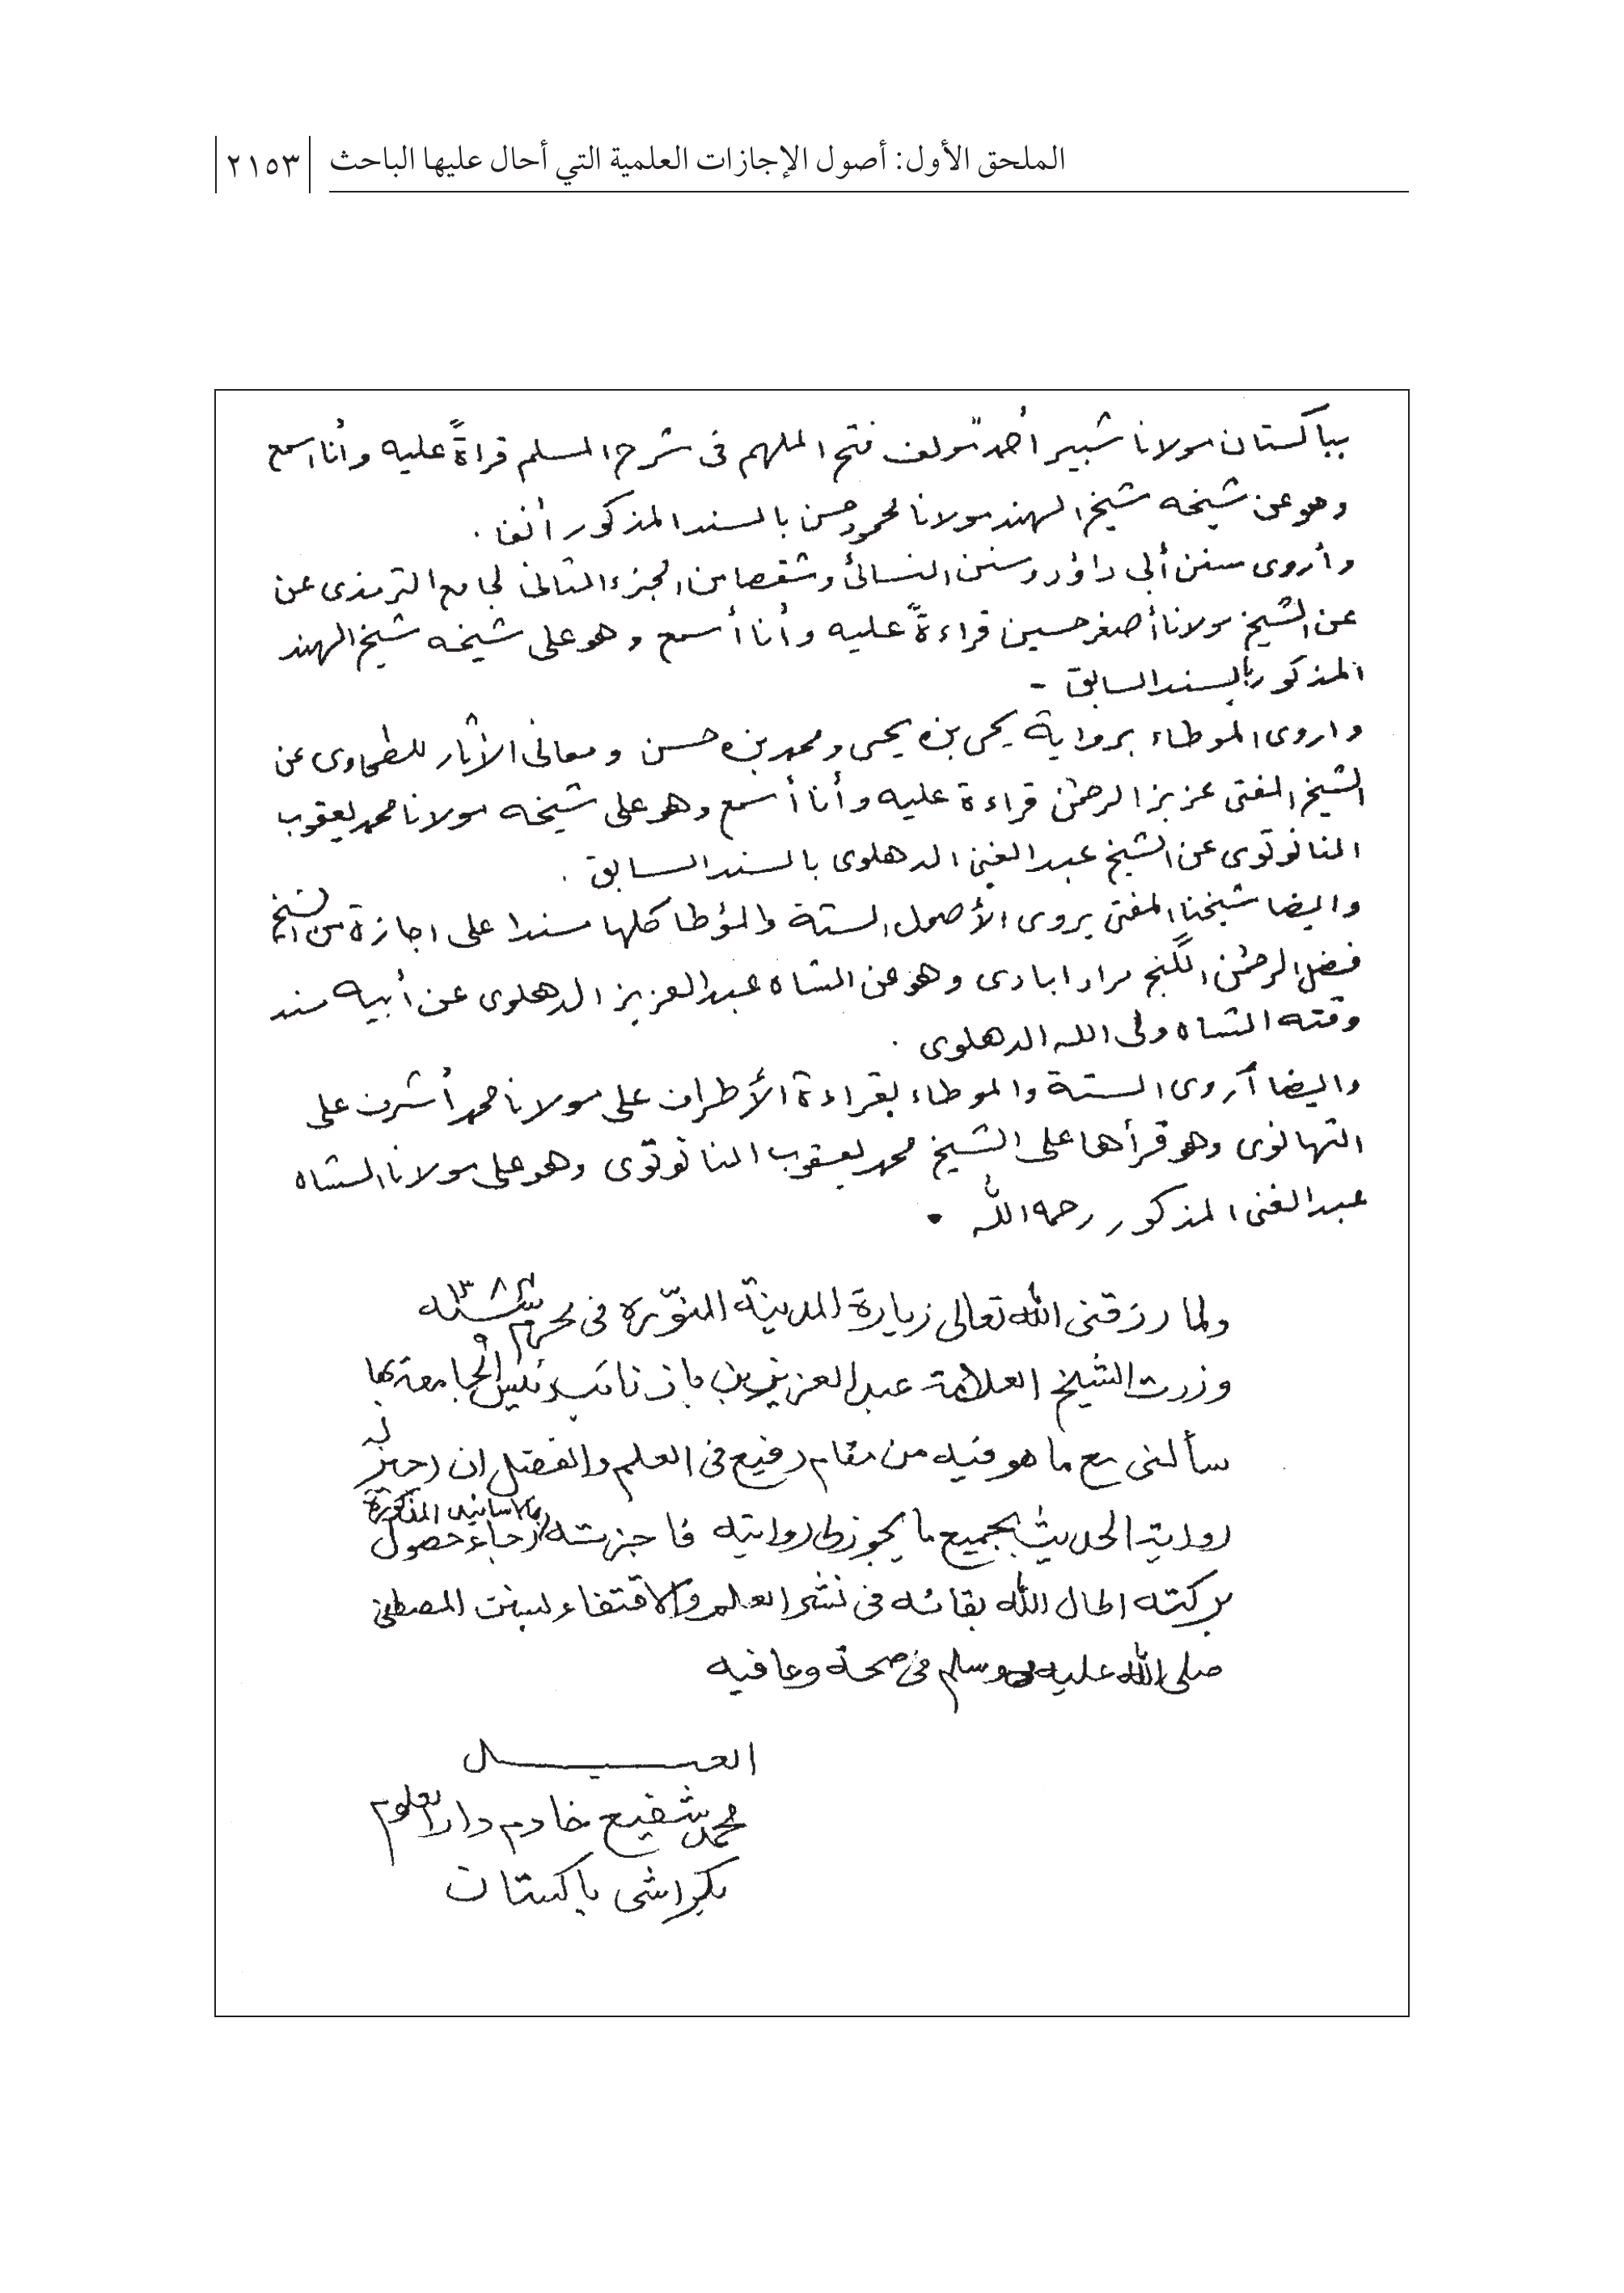 الملحق الأول: أصول الإجازات العلمية التي أحال عليها الباحث
٢١٥٣
بباكستان مولانا شبير أحمد مؤلف فتح الملهم فى شرح المسلم قراةً عليه وأنا اسمع
وهو عن شيخه شيخ الهند مولانا محمود حسن بالسند المذكور أنفا .
وأروى سنن أبى داؤد وسنن النسائى وشقصا من الجزء الثانى لجامع الترمذى عن
عن الشيخ مولانا أصغر حسين قراءةً عليه وأنا أسمع وهو على شيخه شيخ الهند
المذكور بالسند السابق -
واروى الموطاء برواية يحى بن يحيى ومحمد بن حسن ومعانى الأثار للطحاوى عن
الشيخ المفتى عزيز الرحمن قراءة عليه وأنا أسمع وهو على شيخه مولانا محمد يعقوب
النانوتوى عن الشيخ عبد الغنى الدهلوى بالسند السابق .
وايضا شيخنا المفتى يروى الأصول الستة والمؤطا كلها مسندا على اجازة من الشيخ
فضل الرحمن الگنج مراد ابادى وهو عن الشاه عبد العزيز الدهلوى عن أبيه مسند
وقته الشاه ولى الله الدهلوى .
وايضا أروى الستة والموطاء بقراءة الأطراف على مولانا محمد أشرف على
التهانوى وهو قرأها على الشيخ محمد يعقوب النانوتوى وهو على مولانا الشاه
عبد الغنى المذكور رحمه الله .
ولما رزقنى الله تعالى زيارة المدينة المنوّره فى محرم سنه
وزرت الشيخ العلامة عبد العزيز بن باز نائب رئيس الجامعة بها
سألنى مع ما هو فيه من مقام رفيع فى العلم والفضل ان اجيز له
رواية الحديث بجميع ما يجوز لى روايته فاجزته بالاسانيد المذكورة رجاء حصول
بركته اطال الله بقائه فى نشر العلم والاقتفاء لسنن المصطفى
صلى الله عليه وسلم فى صحة وعافيه
العبد
محمد شفيع خادم دار العلوم
بكراشى باكستان